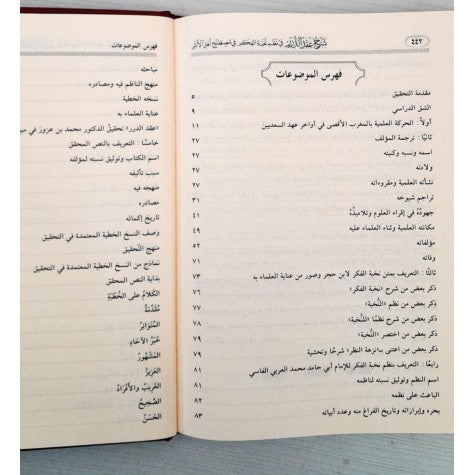 ٤٤٢
شرح عقد الدرر في نظم نخبة الفكر في مصطلح أهل الأثر
فهرس الموضوعات
مقدمة التحقيق ٥
الشق الدراسي ٩
أولاً: الحركة العلمية بالمغرب الأقصى في أواخر عهد السعديين ١١
ثانيًا: ترجمة المؤلف ٢٧
اسمه ونسبه وكنيته ٢٧
ولادته ٢٧
نشأته العلمية ومقروءاته ٢٧
تراجم شيوخه ٣١
جهودُهُ في إقراء العلوم وتلاميذُهُ ٤١
مكانته العلمية وثناء العلماء عليه ٤٩
مؤلفاته ٥٢
وفاته ٧١
ثالثًا: التعريف بمتن نخبة الفكر لابن حجر وصور من عناية العلماء به ٧٣
ذكر بعض من شرح «نخبة الفكر» ٧٦
ذكر بعض من نظم «النُّخبة» ٧٧
ذكر بعض من شرح نظمًا «للنُّخبة» ٧٨
ذكر بعض من اختصر «النُّخبة» ٧٩
ذكر بعض من اعتنى بـ«نزهة النظر» شرحًا وتحشية ٧٩
رابعًا: التعريف بنظم نخبة الفكر للإمام أبي حامد محمد العربي الفاسي ٨١
اسم النظم وتوثيق نسبته لناظمه ٨١
الباعث على نظمه ٨٢
بحره وإبرازاته وتاريخ الفراغ منه وعدد أبياته ٨٣
فهرس الموضوعات
مباحثه
منهج الناظم فيه ومصادره
نسخه الخطية
عناية العلماء به
«عقد الدرر» تحقيق الدكتور محمد بن عزوز في
خامسًا: التعريف بالنص المحقق
اسم الكتاب وتوثيق نسبته لمؤلفه
سبب تأليفه
منهجه فيه
مصادره
تاريخ إكماله
وصف النسخ الخطية المعتمدة في التحقيق
منهج التحقيق
نماذج من النسخ الخطية المعتمدة في التحقيق
بداية النص المحقق
الكَلَامُ على الخُطْبَةِ
مُقَدِّمَةٌ
المُتَوَاتِرُ
خَبَرُ الآحَادِ
المَشْهُورُ
العَزِيزُ
الغَرِيبُ وَالأَفْرَادُ
الصَّحِيحُ
الحَسَنُ